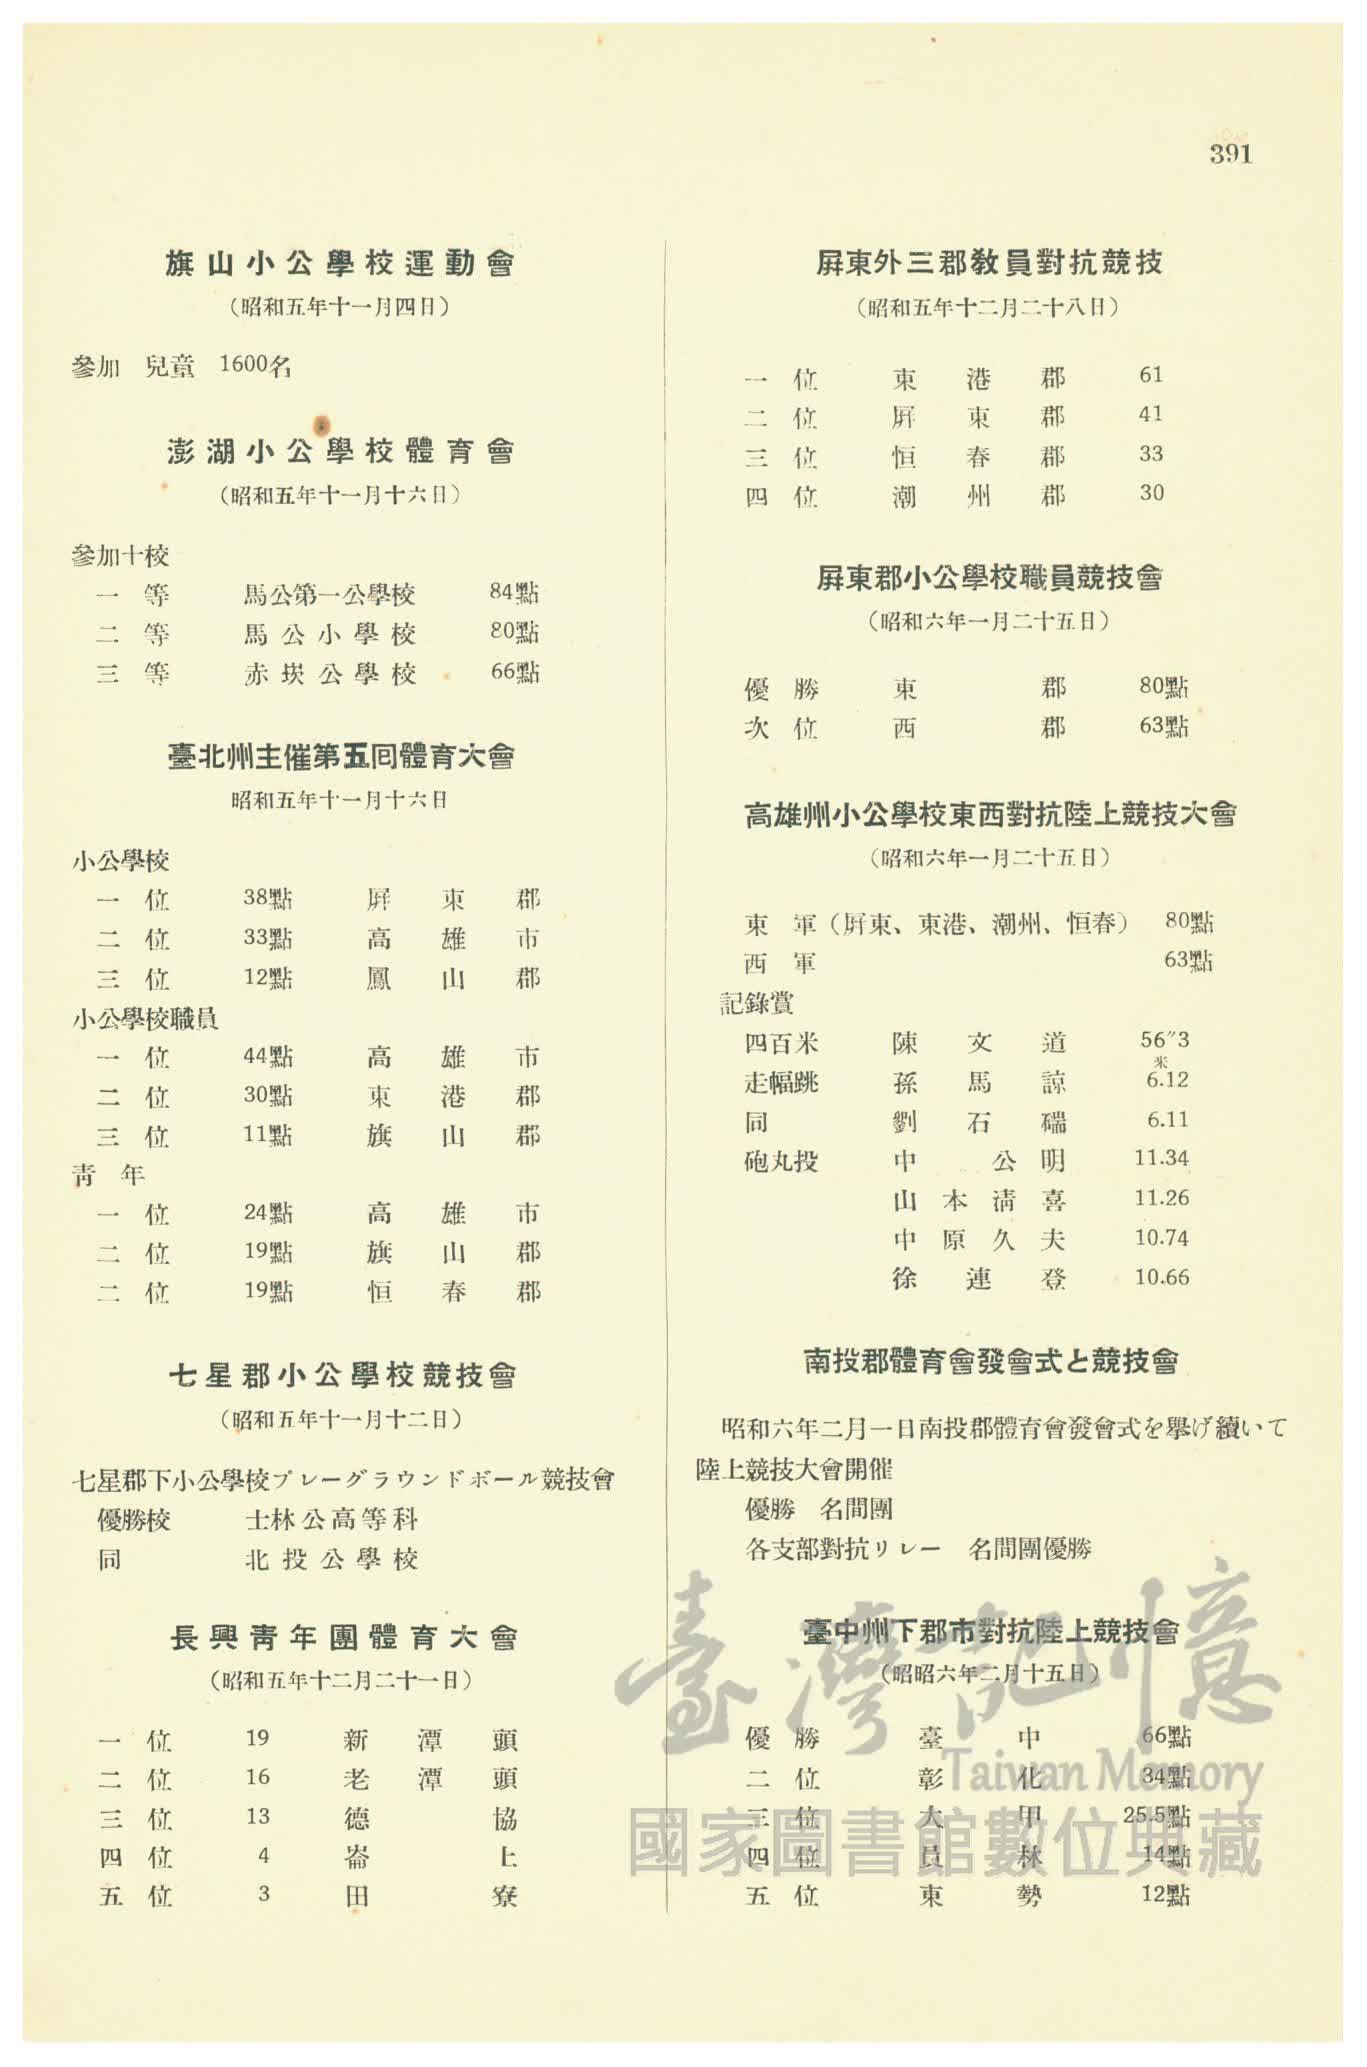 391
旗山小公學校運動會
（昭和五年十一月四日）
參加　兒童　1600名
澎湖小公學校體育會
（昭和五年十一月十六日）
參加十校
一等　馬公第一公學校　84點
二等　馬公小學校　80點
三等　赤崁公學校　66點
臺北州主催第五回體育大會
昭和五年十一月十六日
小公學校
一位　38點　屏東郡
二位　33點　高雄市
三位　12點　鳳山郡
小公學校職員
一位　44點　高雄市
二位　30點　東港郡
三位　11點　旗山郡
靑年
一位　24點　高雄市
二位　19點　旗山郡
二位　19點　恒春郡
七星郡小公學校競技會
（昭和五年十一月十二日）
七星郡下小公學校プレーグラウンドボール競技會
優勝校　士林公高等科
同　北投公學校
長興靑年團體育大會
（昭和五年十二月二十一日）
一位　19　新潭頭
二位　16　老潭頭
三位　13　德協
四位　4　崙上
五位　3　田寮
屏東外三郡敎員對抗競技
（昭和五年十二月二十八日）
一位　東港郡　61
二位　屏東郡　41
三位　恒春郡　33
四位　潮州郡　30
屏東郡小公學校職員競技會
（昭和六年一月二十五日）
優勝　東郡　80點
次位　西郡　63點
高雄州小公學校東西對抗陸上競技大會
（昭和六年一月二十五日）
東軍（屏東、東港、潮州、恒春）　80點
西軍　63點
記錄賞
四百米　陳文道　56″3
走幅跳　孫馬諒　6.12米
同　劉石瑞　6.11
砲丸投　中公明　11.34
山本淸喜　11.26
中原久夫　10.74
徐連登　10.66
南投郡體育會發會式と競技會
昭和六年二月一日南投郡體育會發會式を擧げ續いて
陸上競技大會開催
優勝　名間團
各支部對抗リレー　名間團優勝
臺中州下郡市對抗陸上競技會
（昭昭六年二月十五日）
優勝　臺中　66點
二位　彰化　34點
三位　大甲　25.5點
四位　員林　14點
五位　東勢　12點
臺灣記憶
Taiwan Memory
國家圖書館數位典藏